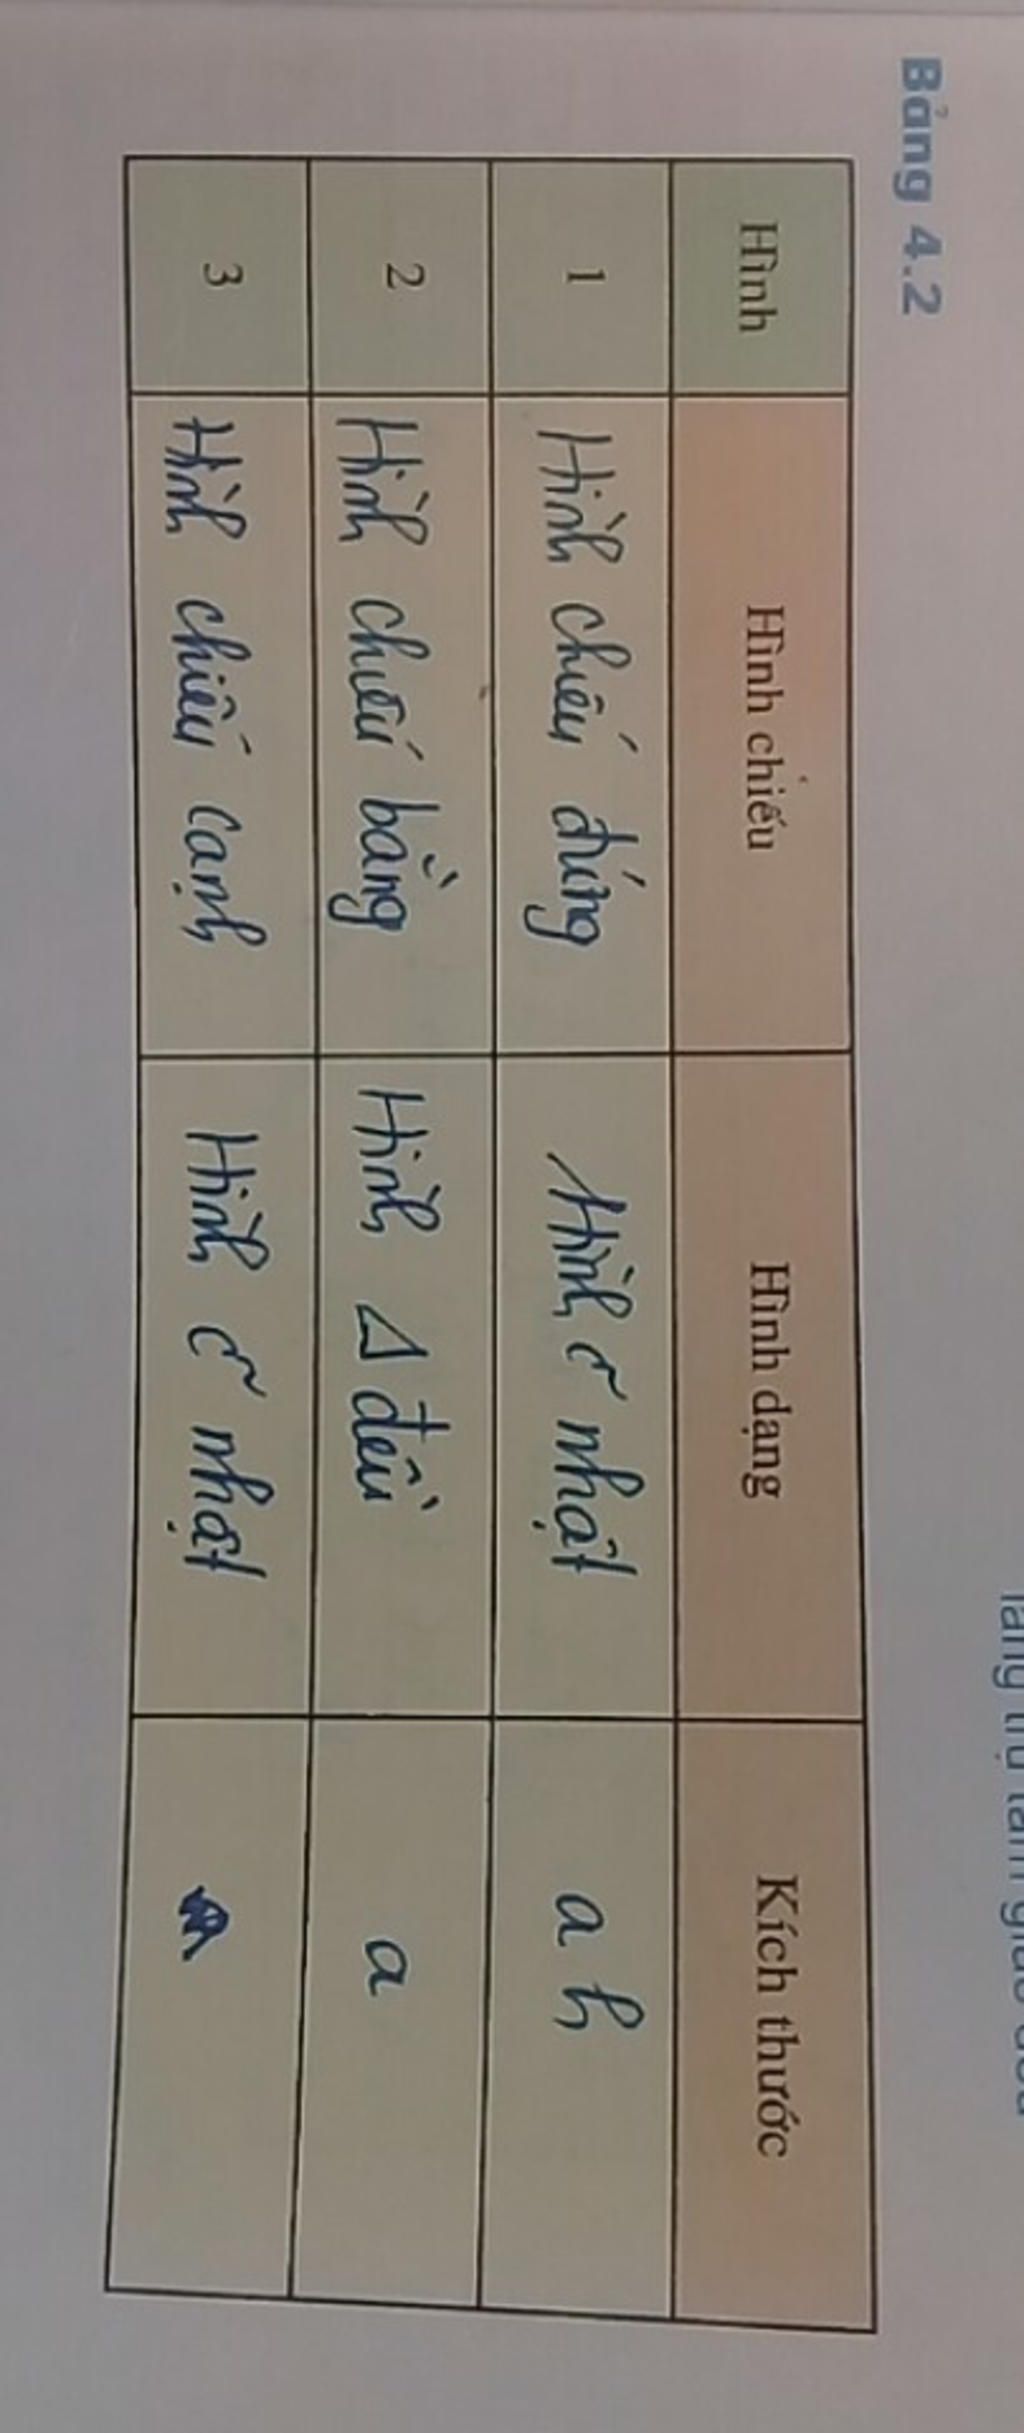 Bảng 4.2
Hình Hình chiếu Hình dạng Kích thước
1 Hình chiếu đứng Hình cn nhật a h
2 Hình chiếu bằng Hình Δ đều a
3 Hình chiếu cạnh Hình cn nhật